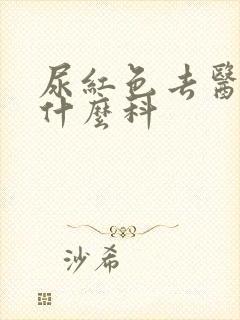 尿紅色去醫
什麼科
沙希